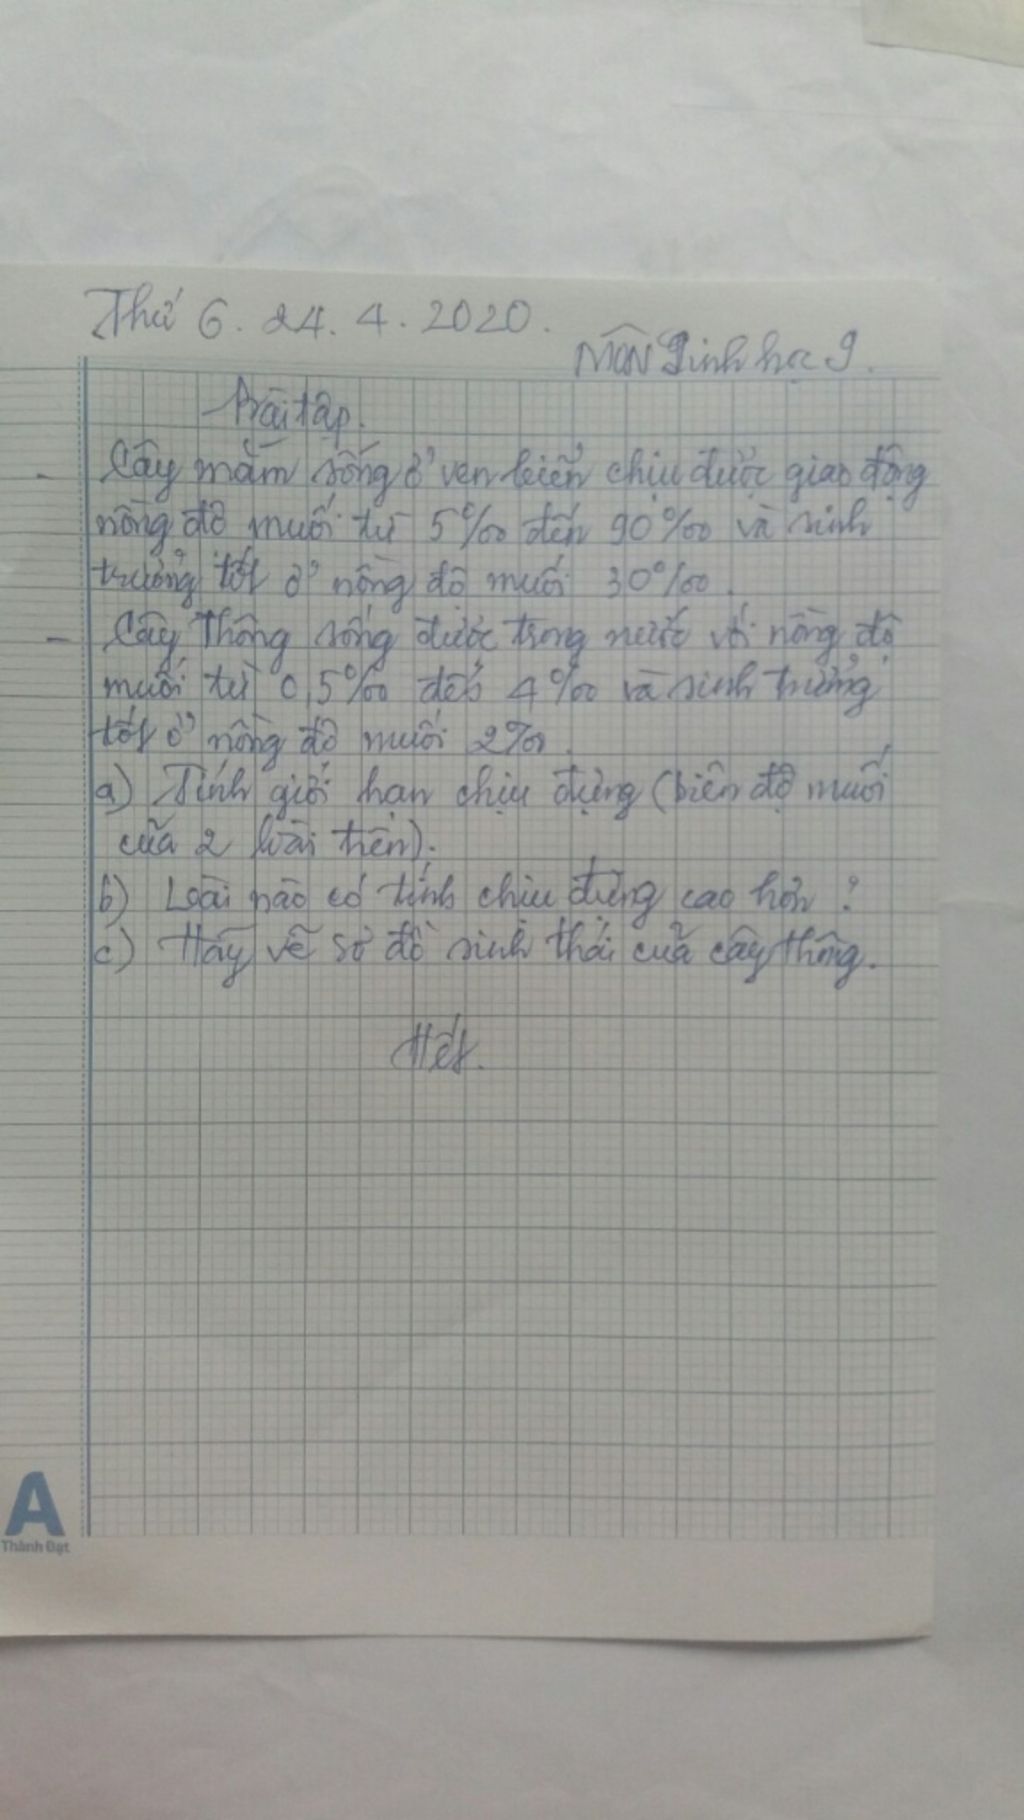 Thứ 6. 24. 4. 2020.
Môn Sinh học 9.
Bài tập.
- Cây mắm sống ở ven biển chịu được giao động
nồng độ muối từ 5‰ đến 90‰ và sinh
trưởng tốt ở nồng độ muối 30‰.
- Cây Thông sống được trong nước với nồng độ
muối từ 0,5‰ đến 4‰ và sinh trưởng
tốt ở nồng độ muối 2‰.
a) Tính giới hạn chịu đựng (biên độ muối
của 2 loài trên).
b) Loài nào có tính chịu đựng cao hơn?
c) Hãy vẽ sơ đồ sinh thái của cây thông.
Hết.
A
Thành Đạt